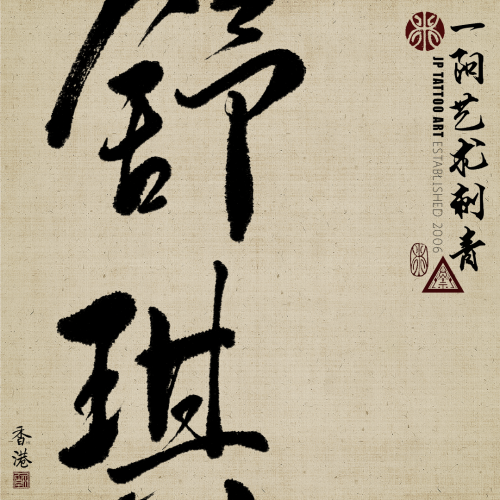 舒
琪
一阳艺术刺青
JP TATTOO ART ESTABLISHED 2006
香港